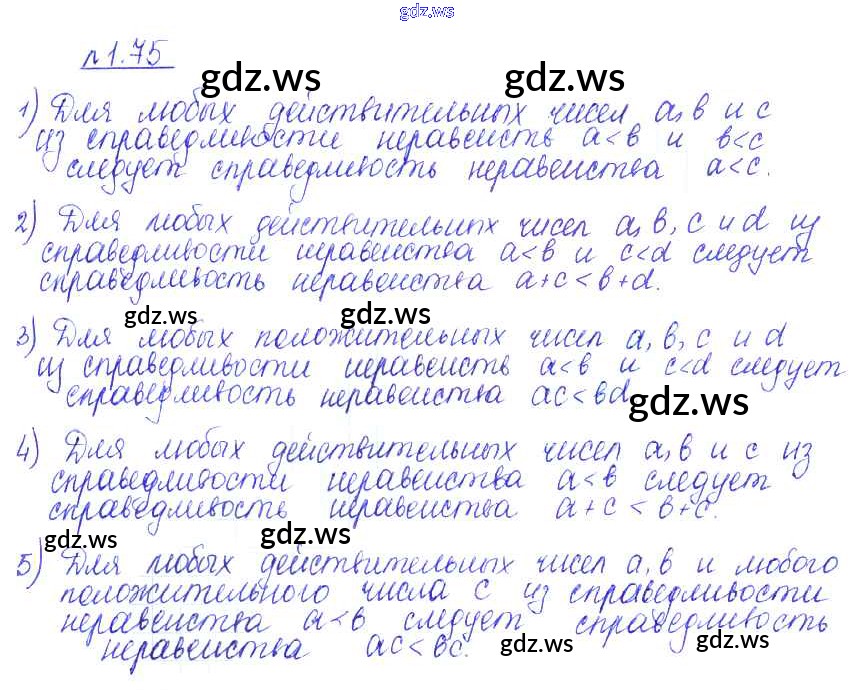 gdz.ws
№1.75
gdz.ws gdz.ws
1) Для любых действительных чисел a, b и c
из справедливости неравенств a<b и b<c
следует справедливость неравенства a<c.
2) Для любых действительных чисел a, b, c и d из
справедливости неравенства a<b и c<d следует
справедливость неравенства a+c<b+d.
gdz.ws gdz.ws
3) Для любых положительных чисел a, b, c и d
из справедливости неравенств a<b и c<d следует
справедливость неравенства ac<bd.
gdz.ws
4) Для любых действительных чисел a, b и c из
справедливости неравенства a<b следует
справедливость неравенства a+c<b+c.
gdz.ws gdz.ws
5) Для любых действительных чисел a, b и любого
положительного числа c из справедливости
неравенства a<b следует справедливость
неравенства ac<bc.
gdz.ws gdz.ws